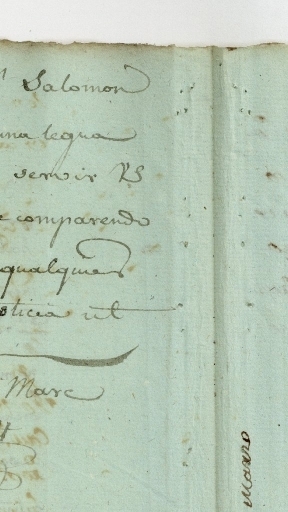 Salomon
una legua
servir VS
comparendo
qualquiera
noticia ut
Marc
Marzo